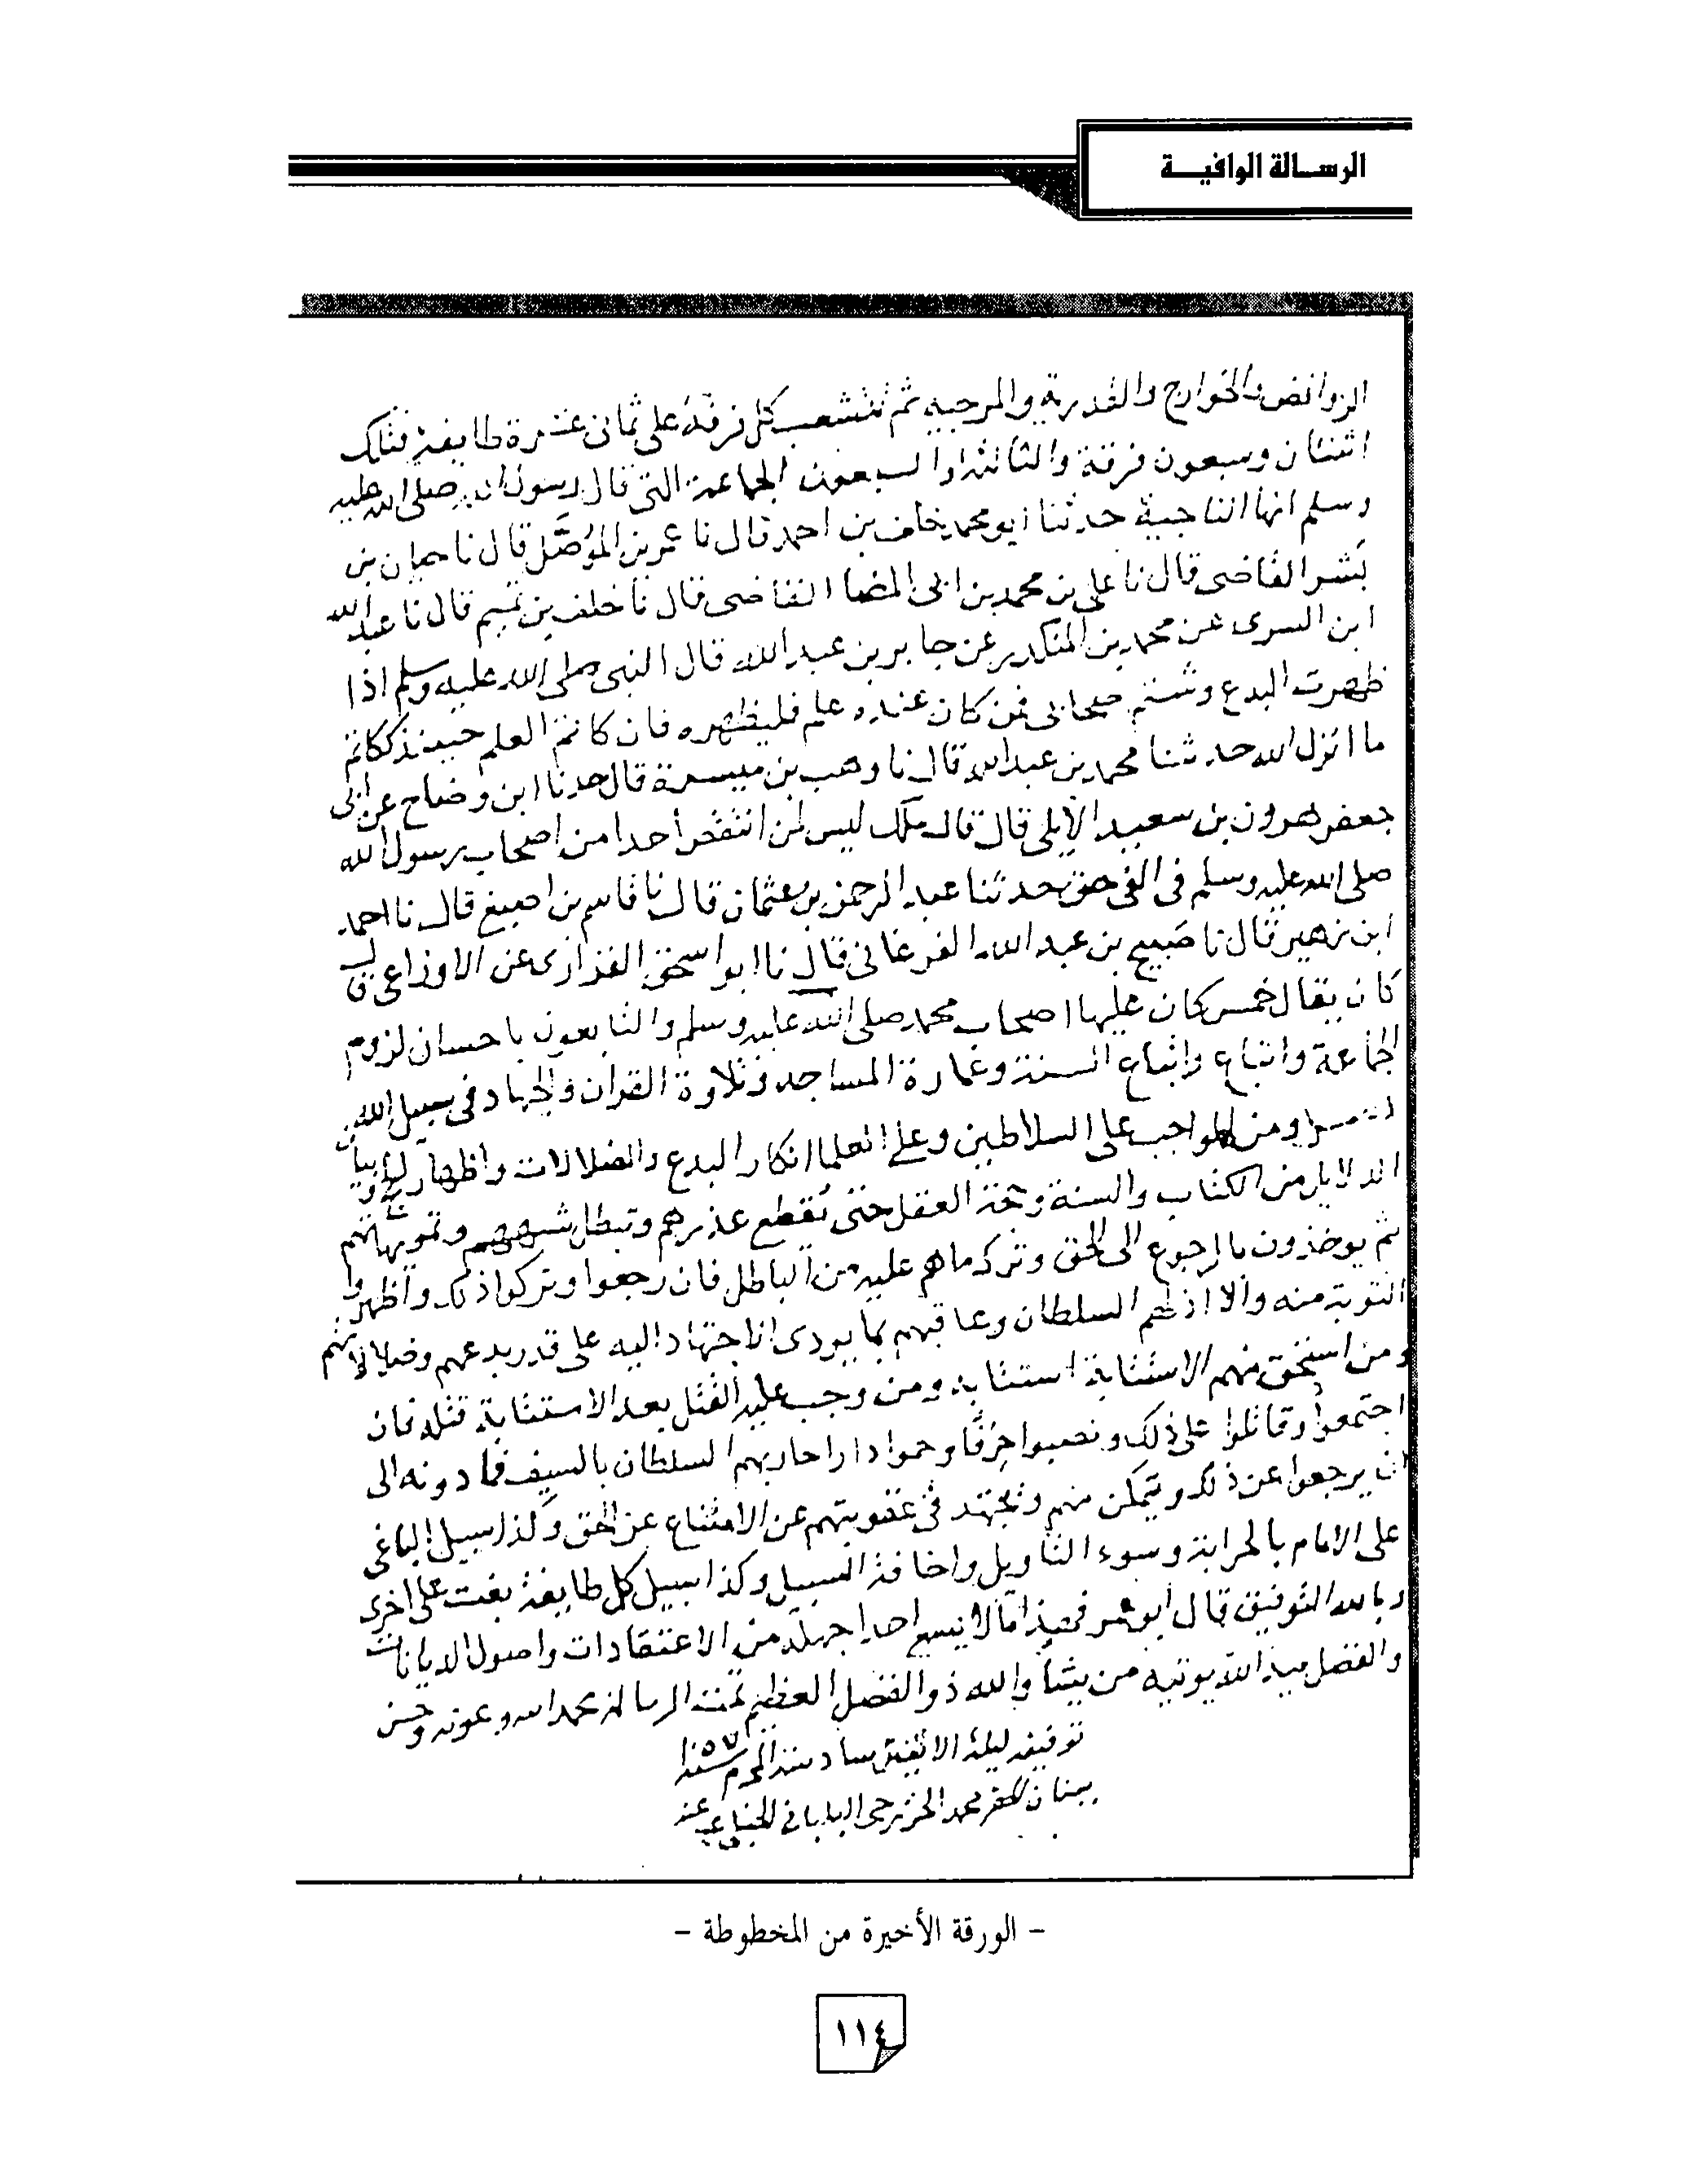 الرسالة الوافية
الروافض والخوارج والقدرية والمرجيه ثم تتشعب كل فرقة على ثمانى عشرة طايفة فتلك
اثنتان وسبعون فرقة والثالثة والسبعون الجماعة التى قال رسول الله صلى الله عليه
وسلم انها الناجية حدثنا ابو محمد خلف بن احمد قال نا عمر بن المؤمل قال نا حيان بن
بشر القاضى قال نا على بن محمد بن ابى المضا القاضى قال نا خلف بن تميم قال نا عبد الله
ابن السرى عن محمد بن المنكدر عن جابر بن عبد الله قال النبى صلى الله عليه وسلم اذا
ظهرت البدع وشتم صحابى فمن كان عنده علم فليظهره فان كاتم العلم حينئذ ككاتم
ما انزل الله حدثنا محمد بن عبد الله قال نا وهب بن ميسرة قال حدثنا ابن وضاح عن ابى
جعفر هرون بن سعيد الايلى قال قال ملك ليس لمن انتقص أحدا من اصحاب رسول الله
صلى الله عليه وسلم فى الفى حق حدثنا عبد الرحمن بن عثمان قال نا قاسم بن اصبغ قال نا احمد
ابن زهير قال نا صبيح بن عبد الله الفرغانى قال نا ابو اسحق الفزارى عن الاوزاعى قال
كان يقال خمس كان عليها اصحاب محمد صلى الله عليه وسلم والتابعون باحسان لزوم
الجماعة واتباع واتباع السنة وعمارة المساجد وتلاوة القران والجهاد فى سبيل الله
ومن الواجب على السلاطين وعلى العلما انكار البدع والضلالات واظهار
الدلايل من الكتاب والسنة وحجة العقل حتى تقطع عذرهم وتبطل شبههم وتمويهاتهم
ثم يوخذون بالرجوع الى الحق وترك ما هم عليه من الباطل فان رجعوا وتركوا ذلك واظهروا
التوبة منه والا اذلهم السلطان وعاقبهم بما يودى اليه على قدر بدعهم وضلالاتهم
ومن استحق منهم الاستتابة استتابه ومن وجب عليه القتل بعد الاستتابة قتله فان
اجتمعوا وقاتلوا على ذلك ونصبوا حربا وحموا دارا حاربهم السلطان بالسيف فما دونه الى
ان يرجعوا عن ذلك ويتمكن منهم ويجتهد فى عقوبتهم عن الامتناع عن الحق وكذا سبيل الباغى
على الامام بالحرابة وسوء التأويل واخافة السبيل وكذا سبيل كل طايفة بغت على اخرى
وبالله التوفيق قال ابو عمرو فهذا مالا يسع احدا جهله من الاعتقادات واصول الديانات
والفضل بيد الله يوتيه من يشأ والله ذو الفضل العظيم تمت الرسالة بحمد الله وعونه وحسن
توفيقه ليلة الاثنين سادس المحرم سنة
محمد الخزرجى
- الورقة الأخيرة من المخطوطة -
١١٤